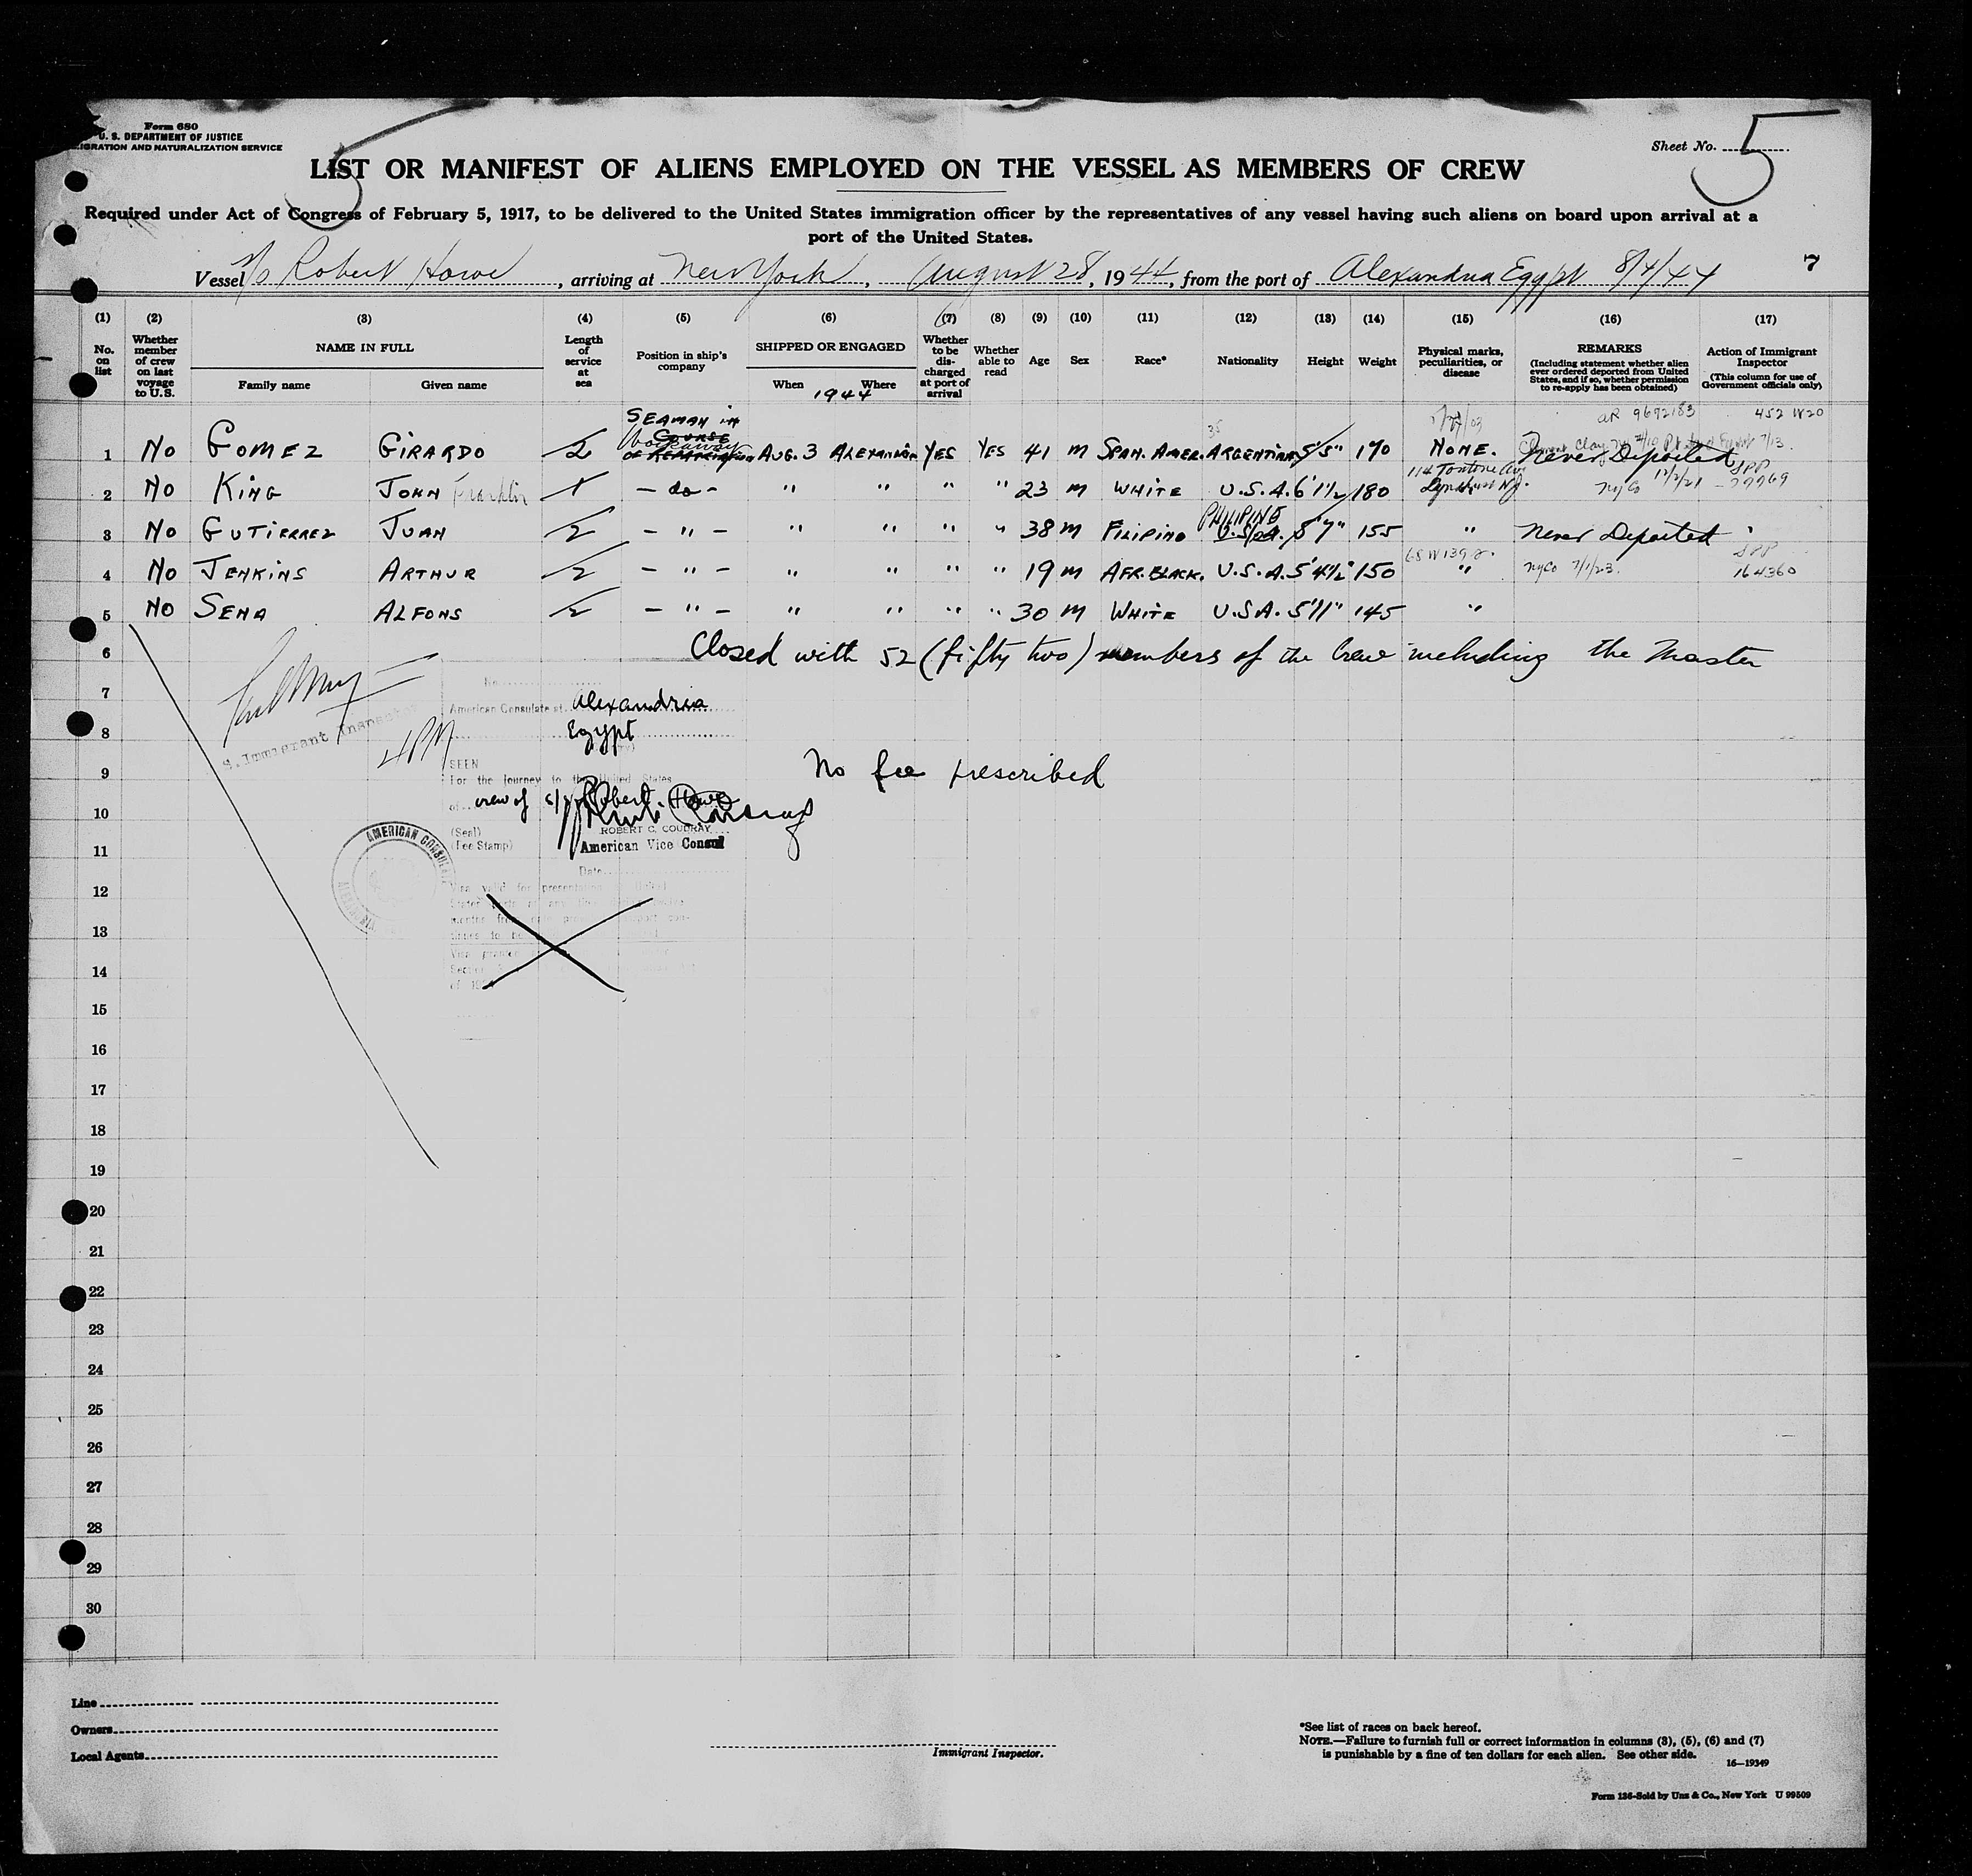 Form 680
U. S. DEPARTMENT OF JUSTICE
IGRATION AND NATURALIZATION SERVICE
Sheet No. 5
5
LIST OR MANIFEST OF ALIENS EMPLOYED ON THE VESSEL AS MEMBERS OF CREW
Required under Act of Congress of February 5, 1917, to be delivered to the United States immigration officer by the representatives of any vessel having such aliens on board upon arrival at a
port of the United States.
Vessel S/S Robert Howe, arriving at New York, August 28, 1944, from the port of Alexandria Egypt 8/4/44
7
(1) (2) (3) (4) (5) (6) (7) (8) (9) (10) (11) (12) (13) (14) (15) (16) (17)
No. on list
Whether member of crew on last voyage to U.S.
NAME IN FULL
Family name Given name
Length of service at sea
Position in ship's company
SHIPPED OR ENGAGED
When Where
1944
Whether to be discharged at port of arrival
Whether able to read
Age
Sex
Race*
Nationality
Height
Weight
Physical marks, peculiarities, or disease
REMARKS
(Including statement whether alien ever ordered deported from United States, and if so, whether permission to re-apply has been obtained)
Action of Immigrant Inspector
(This column for use of Government officials only)
SEAMAN in
COURSE
Workaway
OF REPATRIATION
35
AR 9672183 452 W20
1 NO GOMEZ GIRARDO 2 AUG. 3 ALEXANDRIA YES YES 41 M SPAN. AMER. ARGENTINA 5'5" 170 NONE. Never Deported
114 Tontine Ave
Lyndhurst NJ.
2 NO KING JOHN Franklin 1 - do - " " " " 23 M WHITE U.S.A. 6'1½ 180 " NYC 12/2/21
PHILIPINE
3 NO GUTIERREZ JUAN 2 - " - " " " " 38 M FILIPINO U.S.A. 5'7" 155 " Never Deported "
68 W 139
4 NO JENKINS ARTHUR 2 - " - " " " " 19 M AFR. BLACK. U.S.A. 5'4½" 150 " NYC 7/1/23. 164360
5 NO SENA ALFONS 2 - " - " " " " 30 M WHITE U.S.A. 5'11" 145 "
6 Closed with 52 (fifty two) members of the Crew including the Master
7
S. Immigrant Inspector
4PM
No.
American Consulate at Alexandria
8 Egypt
SEEN
9 For the journey to the United States
No fee prescribed
of crew of s/s Robert Howe
10
ROBERT C. COUDRAY
(Seal)
(Fee Stamp)
11 American Vice Consul
AMERICAN CONSULATE
Date
12
13
14
15
16
17
18
19
20
21
22
23
24
25
26
27
28
29
30
Line
Owners
Local Agents
Immigrant Inspector.
*See list of races on back hereof.
NOTE.—Failure to furnish full or correct information in columns (3), (5), (6) and (7)
is punishable by a fine of ten dollars for each alien. See other side.
16—19349
Form 136-Sold by Unz & Co., New York U 99509